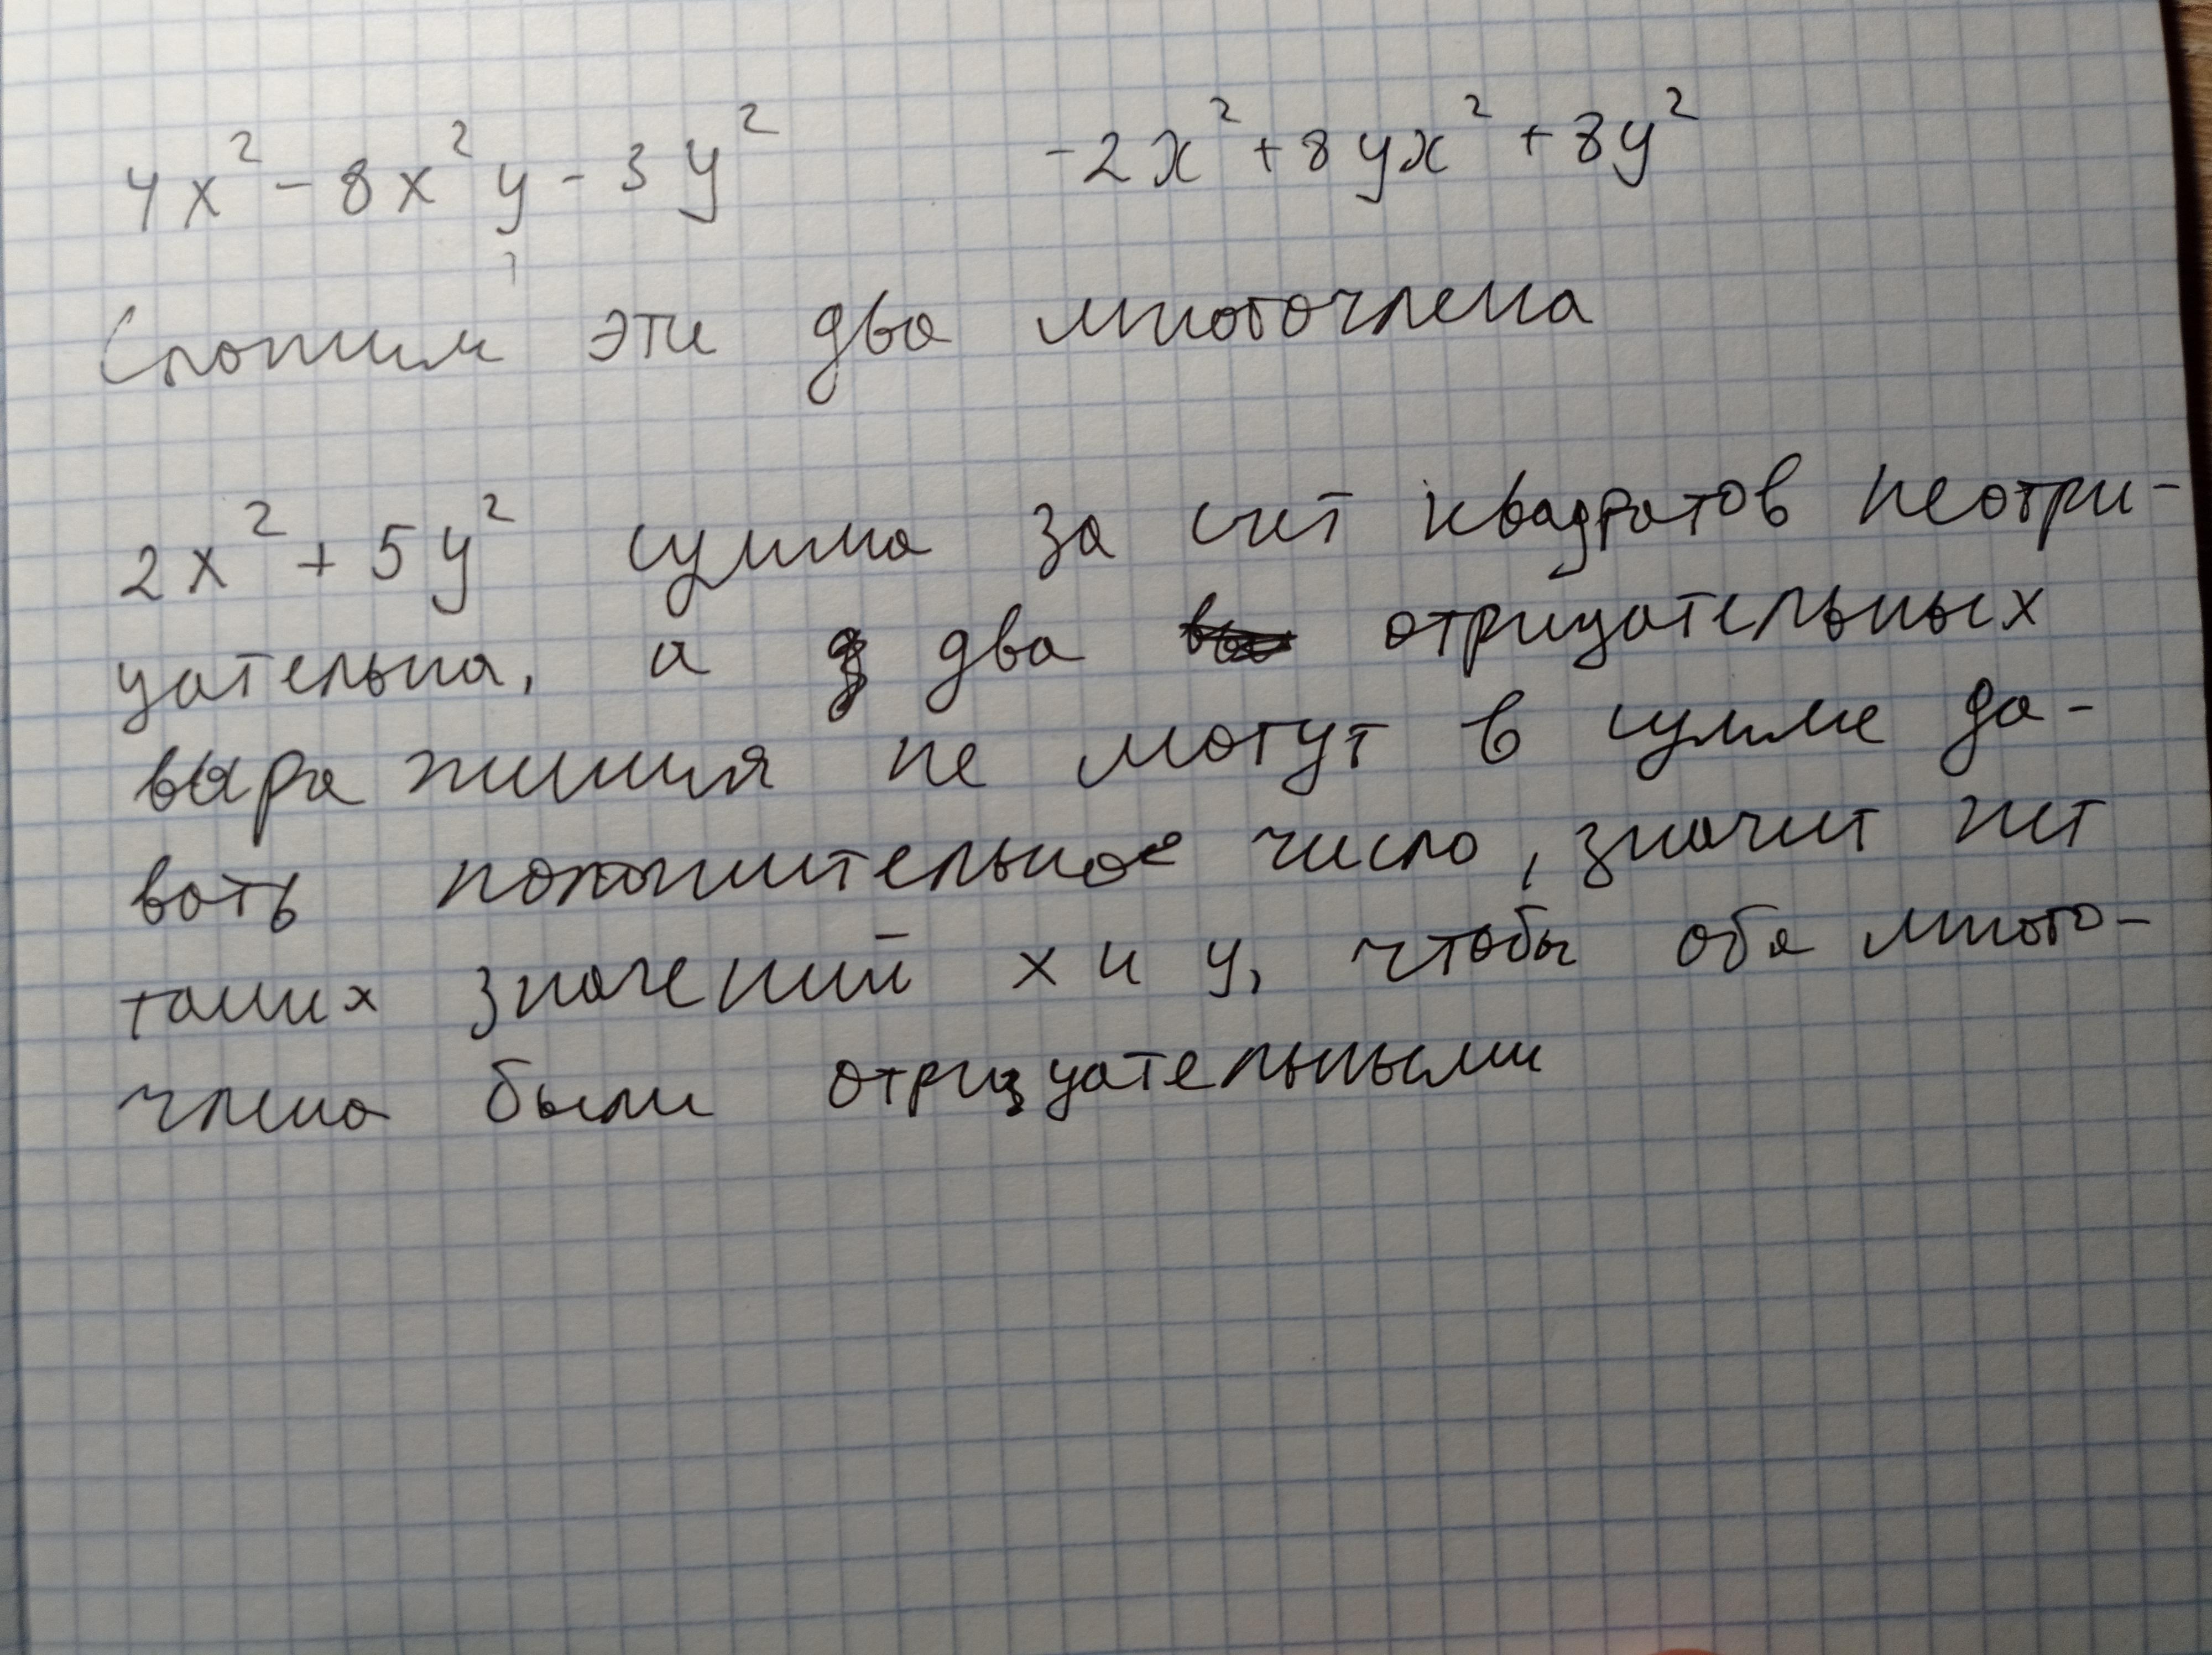 4x² - 8x²y - 3y² -2x² + 8yx² + 8y²
Сложим эти два многочлена
2x² + 5y² сумма за счет квадратов неотри-
цательна, а два отрицательных
выражения не могут в сумме да-
вать положительное число, значит нет
таких значений x и y, чтобы оба много-
члена были отрицательными